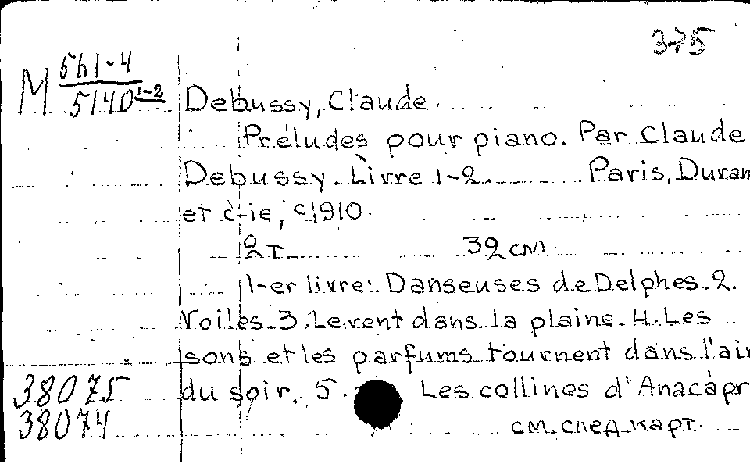 375
М 561-4
5140 1-2
Debussy, Claude.
Préludes pour piano. Par Claude
Debussy. Livre 1-2. Paris, Duran
et c-ie, c1910.
2 т. 32 см
1-er livre: Danseuses de Delphes. 2.
Voiles. 3. Le vent dans la plaine. 4. Les
sons et les parfums tournent dans l'air
du soir. 5. Les collines d'Anacapr
см. след. карт.
38075
38074